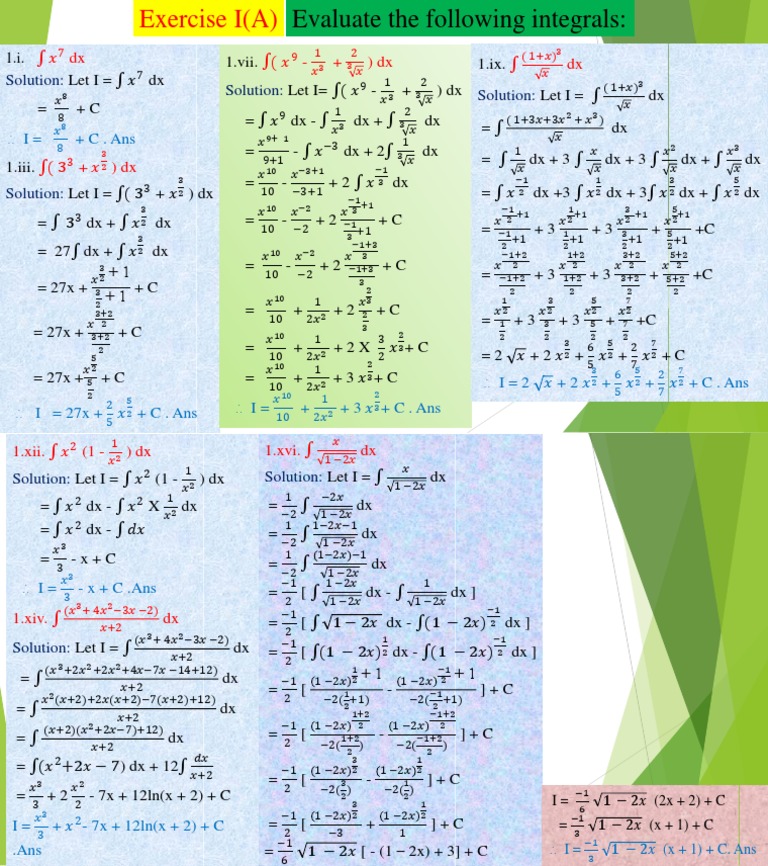 Exercise I(A) Evaluate the following integrals:
1.i. ∫x⁷ dx
Solution: Let I = ∫x⁷ dx
= x⁸/8 + C
∴ I = x⁸/8 + C . Ans
1.iii. ∫( 3³ + x^(3/2) ) dx
Solution: Let I = ∫( 3³ + x^(3/2) ) dx
= ∫ 3³ dx + ∫x^(3/2) dx
= 27∫ dx + ∫x^(3/2) dx
= 27x + x^(3/2 + 1)/(3/2 + 1) + C
= 27x + x^((3+2)/2)/((3+2)/2) + C
= 27x + x^(5/2)/(5/2) + C
∴ I = 27x + 2/5 x^(5/2) + C . Ans
1.vii. ∫( x⁹ - 1/x³ + 2/∛x ) dx
Solution: Let I= ∫( x⁹ - 1/x³ + 2/∛x ) dx
= ∫x⁹ dx - ∫1/x³ dx + ∫2/∛x dx
= x^(9+1)/(9+1) - ∫x⁻³ dx + 2∫1/∛x dx
= x¹⁰/10 - x^(-3+1)/(-3+1) + 2 ∫x^(-1/3) dx
= x¹⁰/10 - x⁻²/-2 + 2 x^(-1/3+1)/(-1/3+1) + C
= x¹⁰/10 - x⁻²/-2 + 2 x^((-1+3)/3)/((-1+3)/3) + C
= x¹⁰/10 + 1/2x² + 2 x^(2/3)/(2/3) + C
= x¹⁰/10 + 1/2x² + 2 X 3/2 x^(2/3)+ C
= x¹⁰/10 + 1/2x² + 3 x^(2/3)+ C
∴ I = x¹⁰/10 + 1/2x² + 3 x^(2/3)+ C . Ans
1.ix. ∫(1+x)³/√x dx
Solution: Let I = ∫(1+x)³/√x dx
= ∫(1+3x+3x² + x³)/√x dx
= ∫1/√x dx + 3 ∫x/√x dx + 3 ∫x²/√x dx + ∫x³/√x dx
= ∫x^(-1/2) dx +3 ∫x^(1/2) dx + 3∫x^(3/2) dx + ∫x^(5/2) dx
= x^(-1/2+1)/(-1/2+1) + 3 x^(1/2+1)/(1/2+1) + 3 x^(3/2+1)/(3/2+1) + x^(5/2+1)/(5/2+1) +C
= x^((-1+2)/2)/((-1+2)/2) + 3 x^((1+2)/2)/((1+2)/2) + 3 x^((3+2)/2)/((3+2)/2) + x^((5+2)/2)/((5+2)/2) +C
= x^(1/2)/(1/2) + 3 x^(3/2)/(3/2) + 3 x^(5/2)/(5/2) + x^(7/2)/(7/2) +C
= 2 √x + 2 x^(3/2) + 6/5 x^(5/2) + 2/7 x^(7/2) + C
∴ I = 2 √x + 2 x^(3/2) + 6/5 x^(5/2) + 2/7 x^(7/2) + C . Ans
1.xii. ∫x² (1 - 1/x²) dx
Solution: Let I = ∫x² (1 - 1/x²) dx
= ∫x² dx - ∫x² X 1/x² dx
= ∫x² dx - ∫dx
= x³/3 - x + C
∴ I = x³/3 - x + C .Ans
1.xiv. ∫(x³+ 4x²−3x −2)/(x+2) dx
Solution: Let I = ∫(x³+ 4x²−3x −2)/(x+2) dx
= ∫(x³+2x²+2x²+4x−7x −14+12)/(x+2) dx
= ∫(x²(x+2)+2x(x+2)−7(x+2)+12)/(x+2) dx
= ∫((x+2)(x²+2x−7)+12)/(x+2) dx
= ∫(x²+2x − 7) dx + 12∫dx/(x+2)
= x³/3 + 2 x²/2 - 7x + 12ln(x + 2) + C
I = x³/3 + x²- 7x + 12ln(x + 2) + C
.Ans
1.xvi. ∫x/√(1−2x) dx
Solution: Let I = ∫x/√(1−2x) dx
= 1/-2 ∫−2x/√(1−2x) dx
= 1/-2 ∫(1−2x−1)/√(1−2x) dx
= 1/-2 ∫((1−2x)−1)/√(1−2x) dx
= -1/2 [ ∫(1−2x)/√(1−2x) dx - ∫1/√(1−2x) dx ]
= -1/2 [ ∫√(1 − 2x) dx - ∫(1 − 2x)^(-1/2) dx ]
= -1/2 [ ∫(1 − 2x)^(1/2) dx - ∫(1 − 2x)^(-1/2) dx ]
= -1/2 [ (1 −2x)^(1/2 + 1)/(−2(1/2+1)) - (1 −2x)^(-1/2 + 1)/(−2(-1/2+1)) ] + C
= -1/2 [ (1 −2x)^((1+2)/2)/(−2((1+2)/2)) - (1 −2x)^((-1+2)/2)/(−2((-1+2)/2)) ] + C
= -1/2 [ (1 −2x)^(3/2)/(−2(3/2)) - (1 −2x)^(1/2)/(−2(1/2)) ] + C
= -1/2 [ (1 −2x)^(3/2)/-3 + (1 −2x)^(1/2)/1 ] + C
= -1/6 √(1 − 2x) [ - (1 - 2x) + 3] + C
I = -1/6 √(1 − 2x) (2x + 2) + C
= -1/3 √(1 − 2x) (x + 1) + C
∴ I = -1/3 √(1 − 2x) (x + 1) + C. Ans